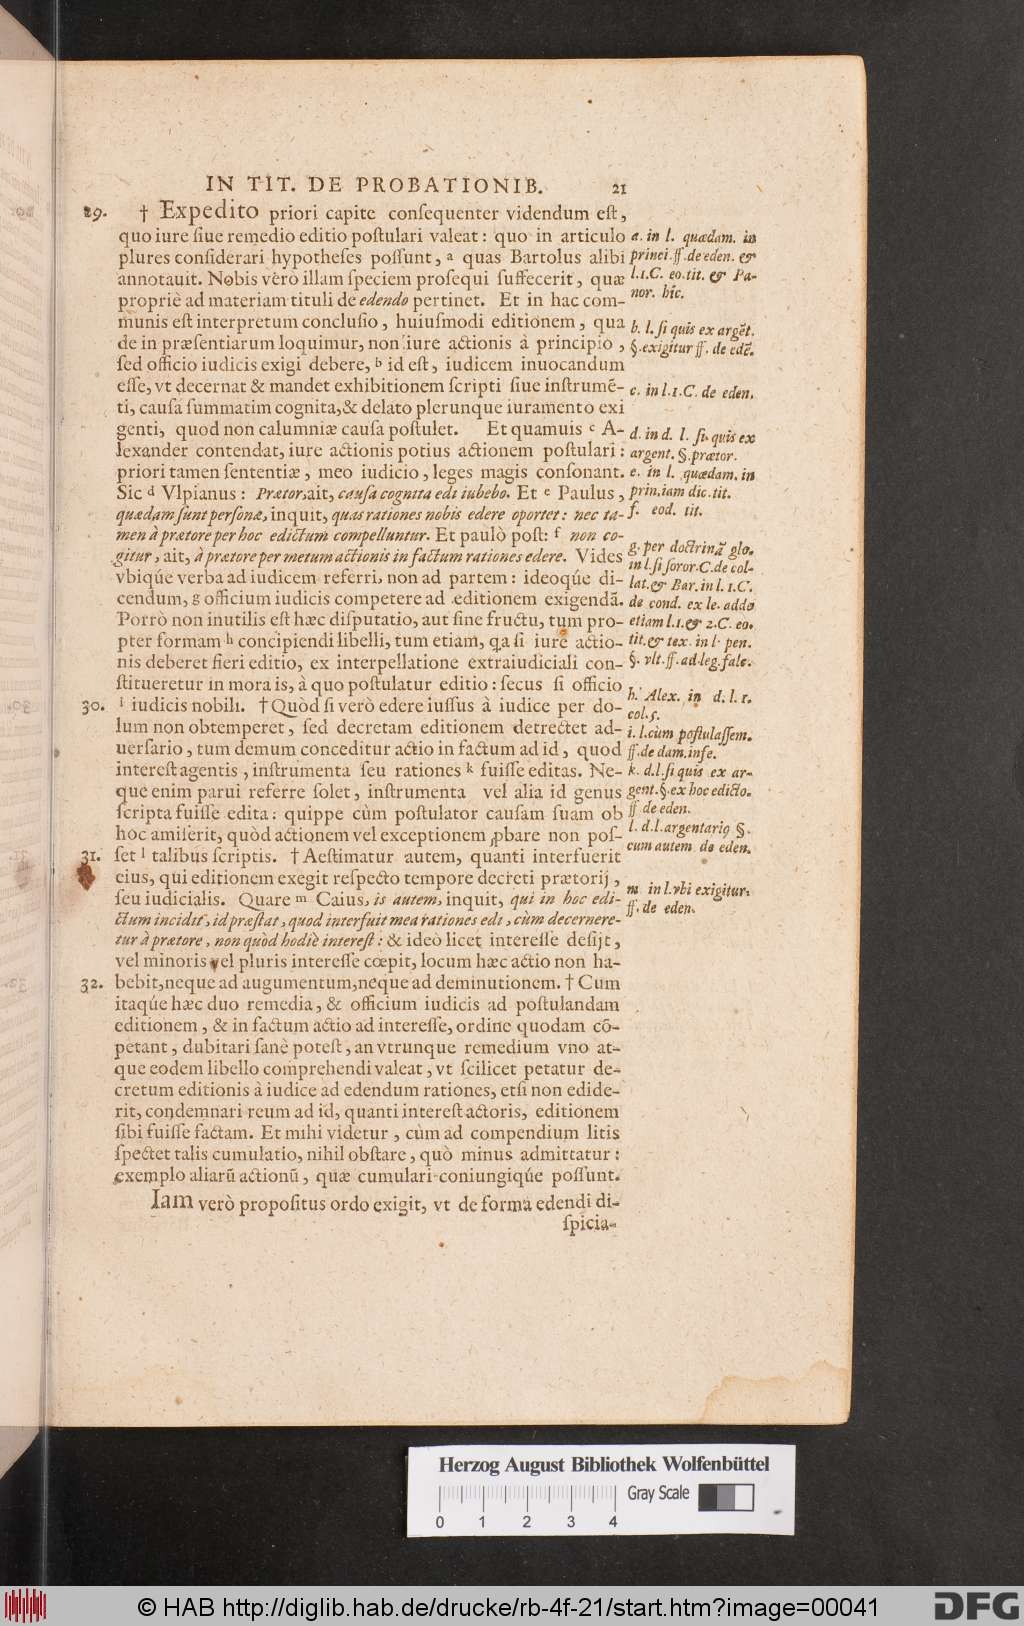 IN TIT. DE PROBATIONIB. 21
29. † Expedito priori capite conſequenter videndum eſt,
quo iure ſiue remedio editio poſtulari valeat: quo in articulo
plures conſiderari hypotheſes poſſunt, a quas Bartolus alibi
annotauit. Nobis verò illam ſpeciem proſequi ſuffecerit, quæ
propriè ad materiam tituli de edendo pertinet. Et in hac com-
munis eſt interpretum concluſio, huiuſmodi editionem, qua
de in præſentiarum loquimur, non iure actionis à principio,
ſed officio iudicis exigi debere, b id eſt, iudicem inuocandum
eſſe, vt decernat & mandet exhibitionem ſcripti ſiue inſtrumē-
ti, cauſa ſummatim cognita, & delato plerunque iuramento exi
genti, quod non calumniæ cauſa poſtulet. Et quamuis c A-
lexander contendat, iure actionis potius actionem poſtulari:
priori tamen ſententiæ, meo iudicio, leges magis conſonant.
Sic d Vlpianus: Prætor, ait, cauſa cognita edi iubebo. Et e Paulus,
quædam ſunt perſonæ, inquit, quas rationes nobis edere oportet: nec ta-
men à prætore per hoc edictum compelluntur. Et paulò poſt: f non co-
gitur, ait, à prætore per metum actionis in factum rationes edere. Vides
vbiqúe verba ad iudicem referri, non ad partem: ideoqúe di-
cendum, g officium iudicis competere ad editionem exigendā.
Porrò non inutilis eſt hæc diſputatio, aut ſine fructu, tum pro-
pter formam h concipiendi libelli, tum etiam, qa ſi iure actio-
nis deberet fieri editio, ex interpellatione extraiudiciali con-
ſtitueretur in mora is, à quo poſtulatur editio: ſecus ſi officio
30. i iudicis nobili. † Quòd ſi verò edere iuſſus à iudice per do-
lum non obtemperet, ſed decretam editionem detrectet ad-
uerſario, tum demum conceditur actio in factum ad id, quod
intereſt agentis, inſtrumenta ſeu rationes k fuiſſe editas. Ne-
que enim parui referre ſolet, inſtrumenta vel alia id genus
ſcripta fuiſſe edita: quippe cùm poſtulator cauſam ſuam ob
hoc amiſerit, quòd actionem vel exceptionem ꝓbare non poſ-
31. ſet l talibus ſcriptis. † Aeſtimatur autem, quanti interfuerit
eius, qui editionem exegit reſpecto tempore decreti prætorij,
ſeu iudicialis. Quare m Caius, is autem, inquit, qui in hoc edi-
ctum incidit, id præſtat, quod interfuit mea rationes edi, cùm decernere-
tur à prætore, non quòd hodiè intereſt: & ideò licet intereſſe deſijt,
vel minoris vel pluris intereſſe cœpit, locum hæc actio non ha-
32. bebit, neque ad augumentum, neque ad deminutionem. † Cum
itaqúe hæc duo remedia, & officium iudicis ad poſtulandam
editionem, & in factum actio ad intereſſe, ordine quodam cō-
petant, dubitari ſanè poteſt, an vtrunque remedium vno at-
que eodem libello comprehendi valeat, vt ſcilicet petatur de-
cretum editionis à iudice ad edendum rationes, etſi non edide-
rit, condemnari reum ad id, quanti intereſt actoris, editionem
ſibi fuiſſe factam. Et mihi videtur, cùm ad compendium litis
ſpectet talis cumulatio, nihil obſtare, quò minus admittatur:
exemplo aliarū actionū, quæ cumulari coniungiqúe poſſunt.
Iam verò propoſitus ordo exigit, vt de forma edendi di-
ſpicia-
a. in l. quædam. in
princi. ff. de eden. &
l. 1. C. eo. tit. & Pa-
nor. hîc.
b. l. ſi quis ex argēt.
§. exigitur ff. de edē.
c. in l. 1. C. de eden.
d. in d. l. ſi quis ex
argent. §. prætor.
e. in l. quædam. in
prin. iam dic. tit.
f. eod. tit.
g. per doctrinā glo.
in l. ſi ſoror. C. de col-
lat. & Bar. in l. 1. C.
de cond. ex le. adde
etiam l. 1. & 2. C. eo.
tit. & tex. in l. pen.
§. vlt. ff. ad leg. falc.
h. Alex. in d. l. 1.
col. 5.
i. l. cùm poſtulaſſem.
ff. de dam. infe.
k. d. l. ſi quis ex ar-
gent. §. ex hoc edicto.
ff de eden.
l. d. l. argentariꝰ §.
cum autem de eden.
m. in l. vbi exigitur.
ff. de eden.
Herzog August Bibliothek Wolfenbüttel
Gray Scale
0 1 2 3 4
© HAB http://diglib.hab.de/drucke/rb-4f-21/start.htm?image=00041
DFG